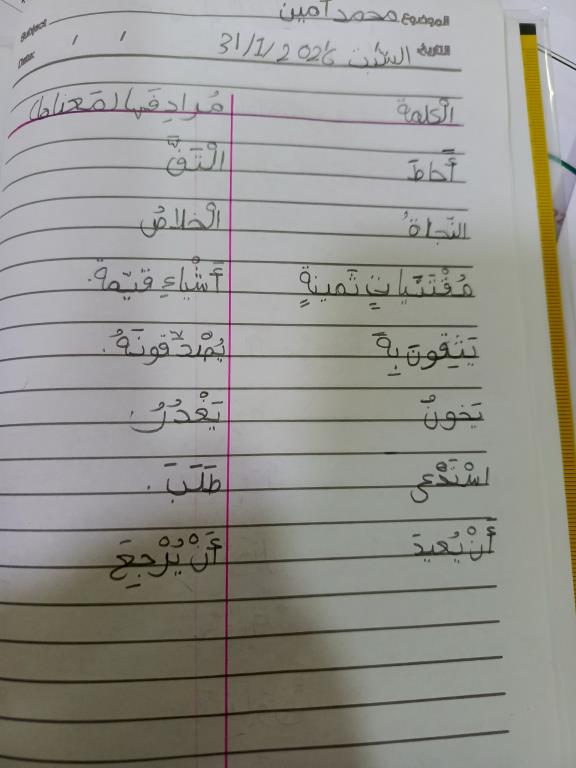 Subject: الموضوع محمد أمين
Date: / / التاريخ السبت 31/1/2026
الكلمة مُرادِفَها (مَعناها)
أَحاطَ الْتَفَّ
النَّجاةُ الْخلاصُ
مُقْتَنَياتٍ ثَمينةٍ أَشْياءِ قَيّمة.
يَثِقونَ بِهِ يُصْدّقونَهُ.
يَخونُ يَغْدُرُ.
اسْتَدْعى طَلَبَ.
أَنْ يُعيدَ أَنْ يُرْجِعَ